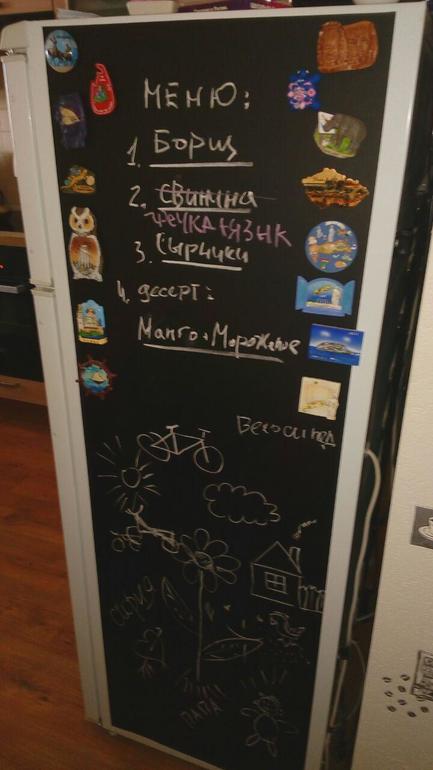 МЕНЮ:
1. Борщ
2. Свинина
ГРЕЧКА+ЯЗЫК
3. Сырники
4. десерт:
Манго+Мороженое
Велосипед
ПАПА